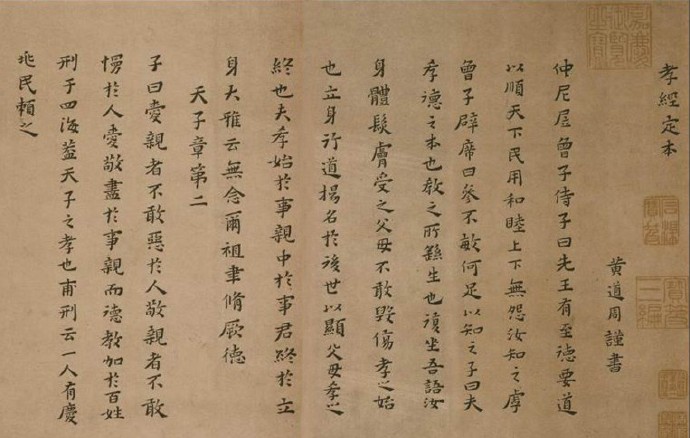 孝經定本
黃道周謹書
仲尼凥曾子侍子曰先王有至德要道
以順天下民用和睦上下無怨汝知之虖
曾子辟席曰參不敏何足以知之子曰夫
孝德之本也教之所繇生也復坐吾語汝
身體髮膚受之父母不敢毀傷孝之始
也立身行道揚名於後世以顯父母孝之
終也夫孝始於事親中於事君終於立
身大雅云無念爾祖聿脩厥德
天子章第二
子曰愛親者不敢惡於人敬親者不敢
慢於人愛敬盡於事親而德教加於百姓
刑于四海蓋天子之孝也甫刑云一人有慶
兆民賴之